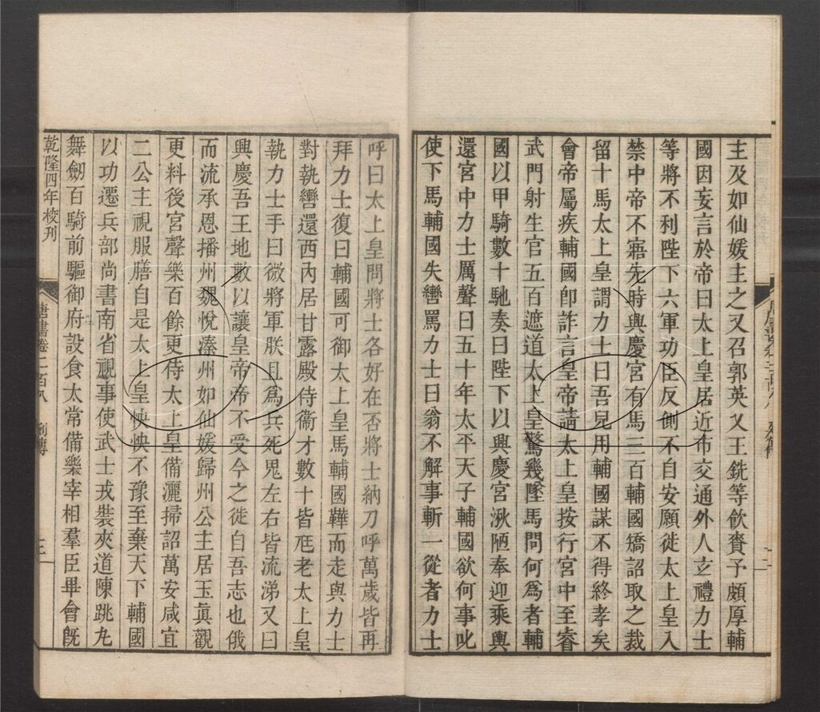 主及如仙媛主之又召郭英乂王銑等飲賚予頗厚輔
國因妄言於帝曰太上皇居近市交通外人玄禮力士
等將不利陛下六軍功臣反側不自安願徙太上皇入
禁中帝不寤先時興慶宮有馬三百輔國矯詔取之裁
留十馬太上皇謂力士曰吾兒用輔國謀不得終孝矣
會帝屬疾輔國卽詐言皇帝請太上皇按行宮中至睿
武門射生官五百遮道太上皇驚幾墜馬問何爲者輔
國以甲騎數十馳奏曰陛下以興慶宮湫陋奉迎乘輿
還宮中力士厲聲曰五十年太平天子輔國欲何事叱
使下馬輔國失轡罵力士曰翁不解事斬一從者力士
呼曰太上皇問將士各好在否將士納刀呼萬歲皆再
拜力士復曰輔國可御太上皇馬輔國鞾而走與力士
對執轡還西內居甘露殿侍衞才數十皆尫老太上皇
執力士手曰微將軍朕且爲兵死鬼左右皆流涕又曰
興慶吾王地數以讓皇帝帝不受今之徙自吾志也俄
而流承恩播州魏悅溱州如仙媛歸州公主居玉眞觀
更料後宮聲樂百餘更侍太上皇備灑掃詔萬安咸宜
二公主視服膳自是太上皇怏怏不豫至棄天下輔國
以功遷兵部尚書南省視事使武士戎裝夾道陳跳丸
舞劒百騎前驅御府設食太常備樂宰相羣臣畢會旣
乾隆四年校刊
唐書卷二百八 列傳
三